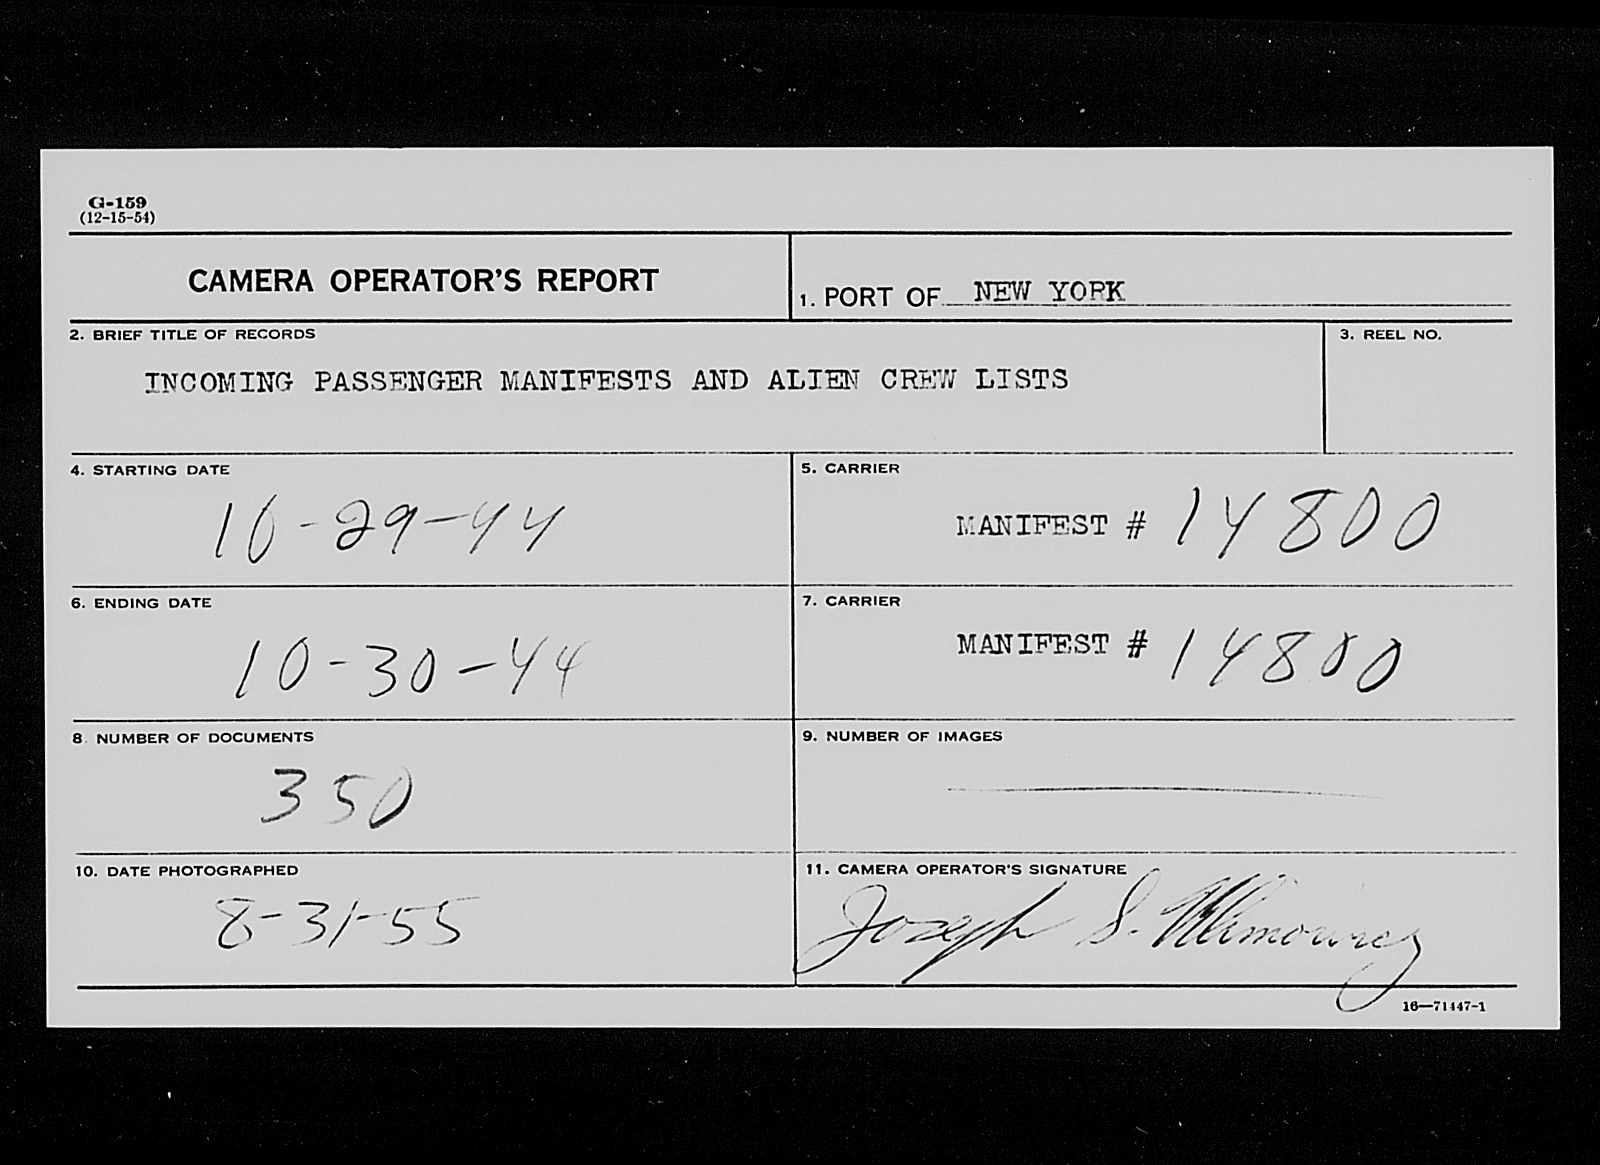 G-159
(12-15-54)
CAMERA OPERATOR'S REPORT
1. PORT OF NEW YORK
2. BRIEF TITLE OF RECORDS
3. REEL NO.
INCOMING PASSENGER MANIFESTS AND ALIEN CREW LISTS
4. STARTING DATE
5. CARRIER
10-29-44
MANIFEST # 14800
6. ENDING DATE
7. CARRIER
10-30-44
MANIFEST # 14800
8. NUMBER OF DOCUMENTS
9. NUMBER OF IMAGES
350
10. DATE PHOTOGRAPHED
11. CAMERA OPERATOR'S SIGNATURE
8-31-55
Joseph S.
16—71447-1